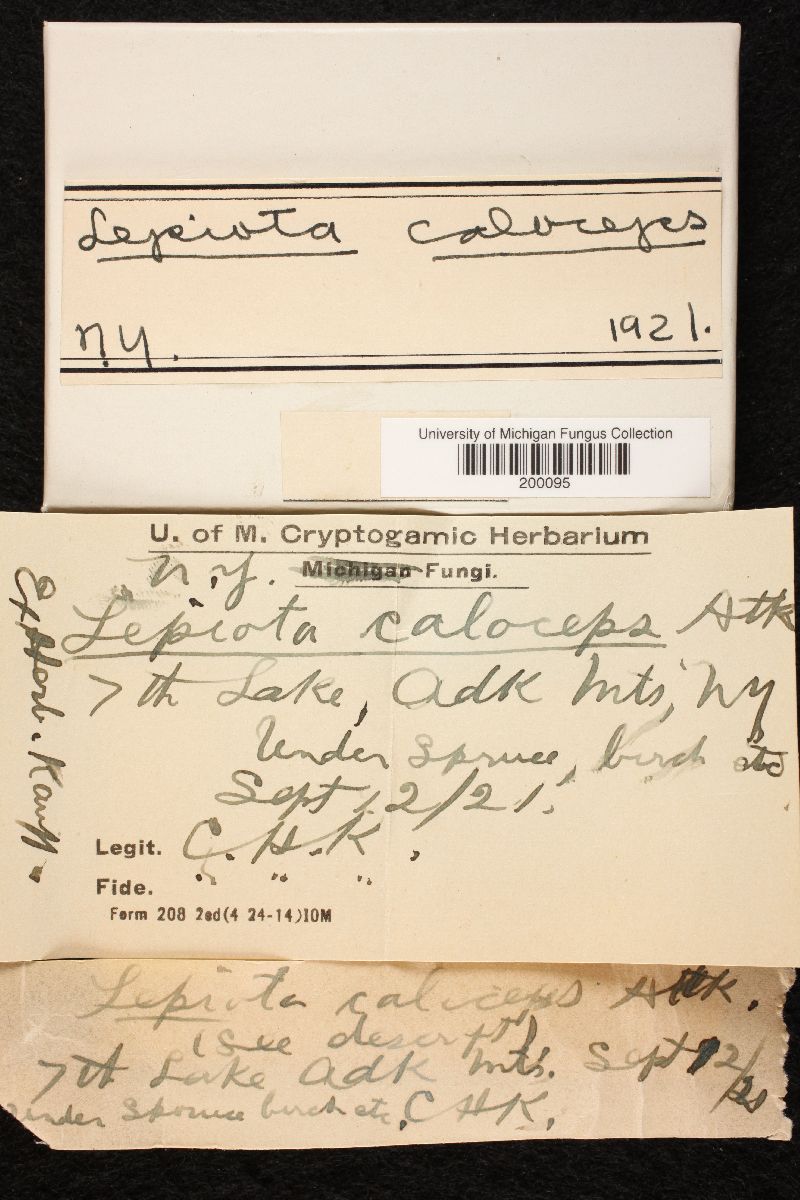 Lepiota caloceps
N.Y. 1921.
University of Michigan Fungus Collection
200095
U. of M. Cryptogamic Herbarium
N.Y. Michigan Fungi.
Lepiota caloceps Atk
7th Lake, Adk Mts, NY
Under spruce, birch etc
Sept. 2/21.
Legit. C.H.K.
Fide. " " "
Form 208 2ed(4 24-14)10M
Ex Herb. Kauff.
Lepiota caloceps Atk.
(See descript)
7th Lake Adk Mts. Sept 2/21
under spruce birch etc. CHK.